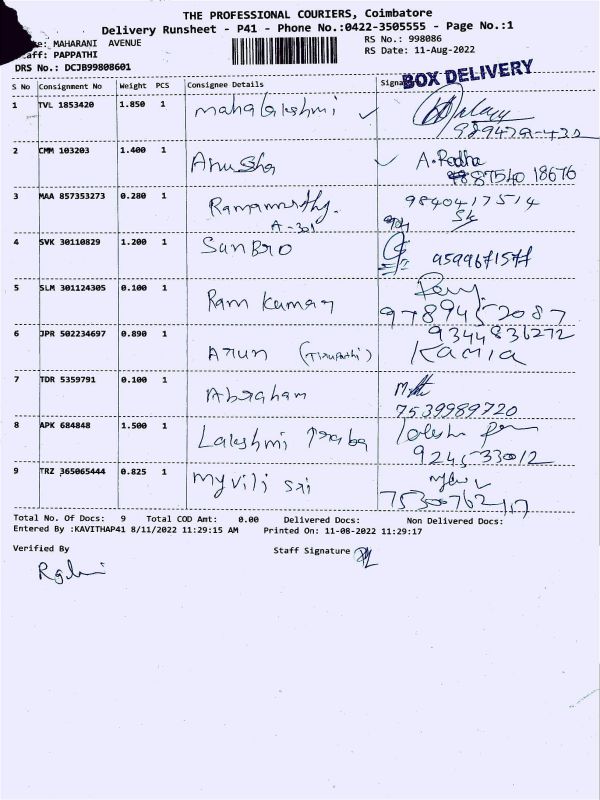 THE PROFESSIONAL COURIERS, Coimbatore
Delivery Runsheet - P41 - Phone No.:0422-3505555 - Page No.:1
MAHARANI AVENUE
RS No.: 998086
aff: PAPPATHI
RS Date: 11-Aug-2022
DRS No.: DCJB99808601
BOX DELIVERY
S No Consignment No Weight PCS Consignee Details Signa
1 TVL 1853420 1.850 1 mahalakshmi
2 CMM 103203 1.400 1 Anusha A. Radha
87540 18676
3 MAA 857353273 0.280 1 Ramamurthy. 9840417514
A-301
4 SVK 30110829 1.200 1 SunBRO
5 SLM 301124305 0.100 1 Ram kumar
9789452087
6 JPR 502234697 0.890 1 Arun (Tirupathi) 9344836272
Kamia
7 TDR 5359791 0.100 1 Abraham
7539989720
8 APK 684848 1.500 1 Lakshmi Praba
9245533012
9 TRZ 365065444 0.825 1 myvili sri
Total No. Of Docs: 9 Total COD Amt: 0.00 Delivered Docs: Non Delivered Docs:
Entered By :KAVITHAP41 8/11/2022 11:29:15 AM Printed On: 11-08-2022 11:29:17
Verified By Staff Signature